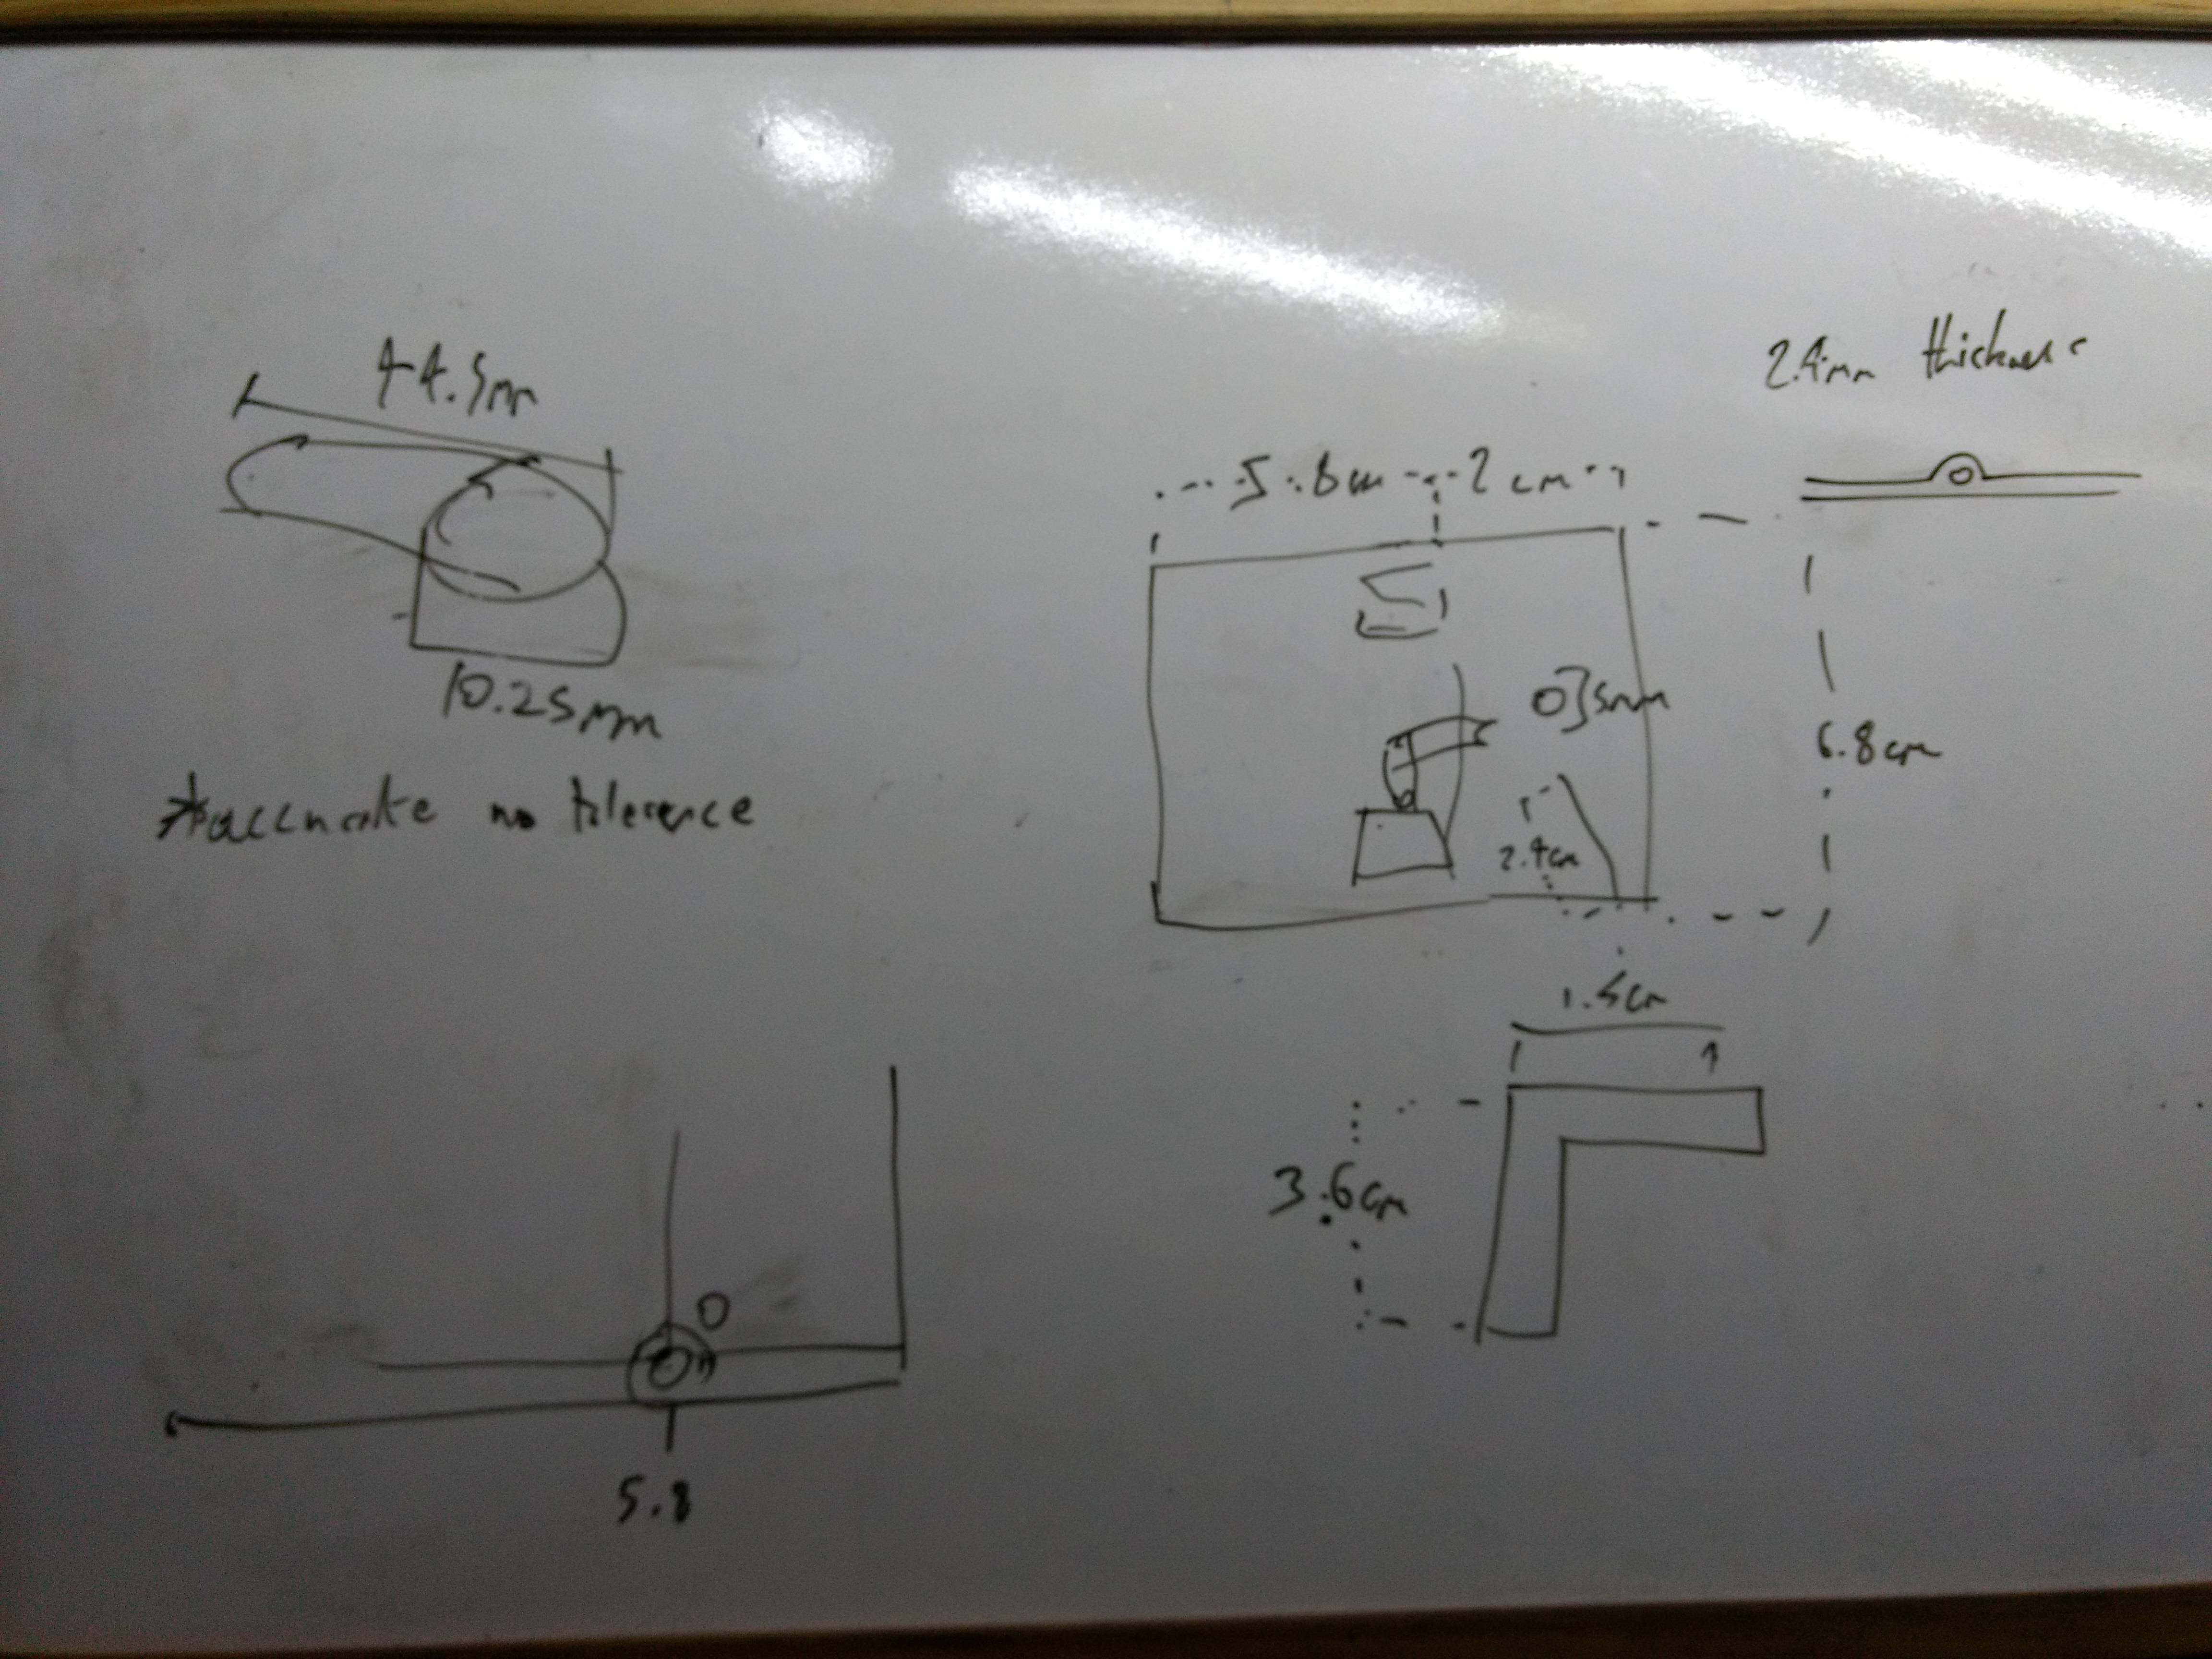 44.5mm
10.25mm
*accurate no tolerence
2.4mm thickness
5.8cm 2cm
5mm
6.8cm
2.4cm
1.5cm
3.6cm
5.8